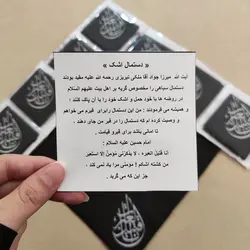 « دستمال اشک »
آیت الله میرزا جواد آقا ملکی تبریزی رحمه الله علیه مقید بودند
دستمال سیاهی را مخصوص گریه بر اهل بیت علیهم السلام
در روضه ها با خود حمل و اشک خود را با آن پاک کنند ؛
و همیشه می فرمودند : من این دستمال را برای قبرم می خواهم
و وصیت کرده ام که دستمال را در قبر من جای دهند ،
تا امانی باشد برای قبر و قیامت .
امام حسین علیه السلام :
أنا قتیل العبره ، لا یذکرنی مؤمن إلا استعبر
من کشته اشکم ! مؤمنی مرا یاد نمی کند ،
جز این که می گرید .